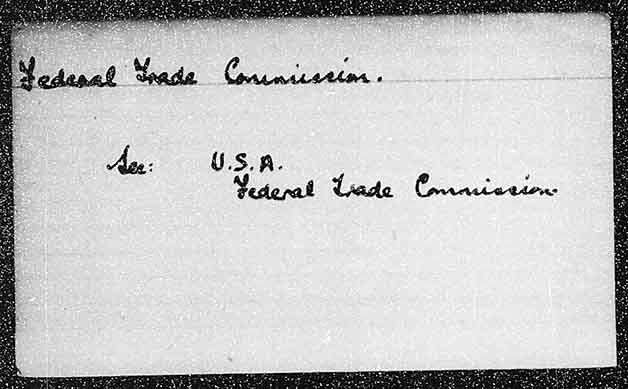 Federal Trade Commission.
See: U.S.A.
Federal Trade Commission.